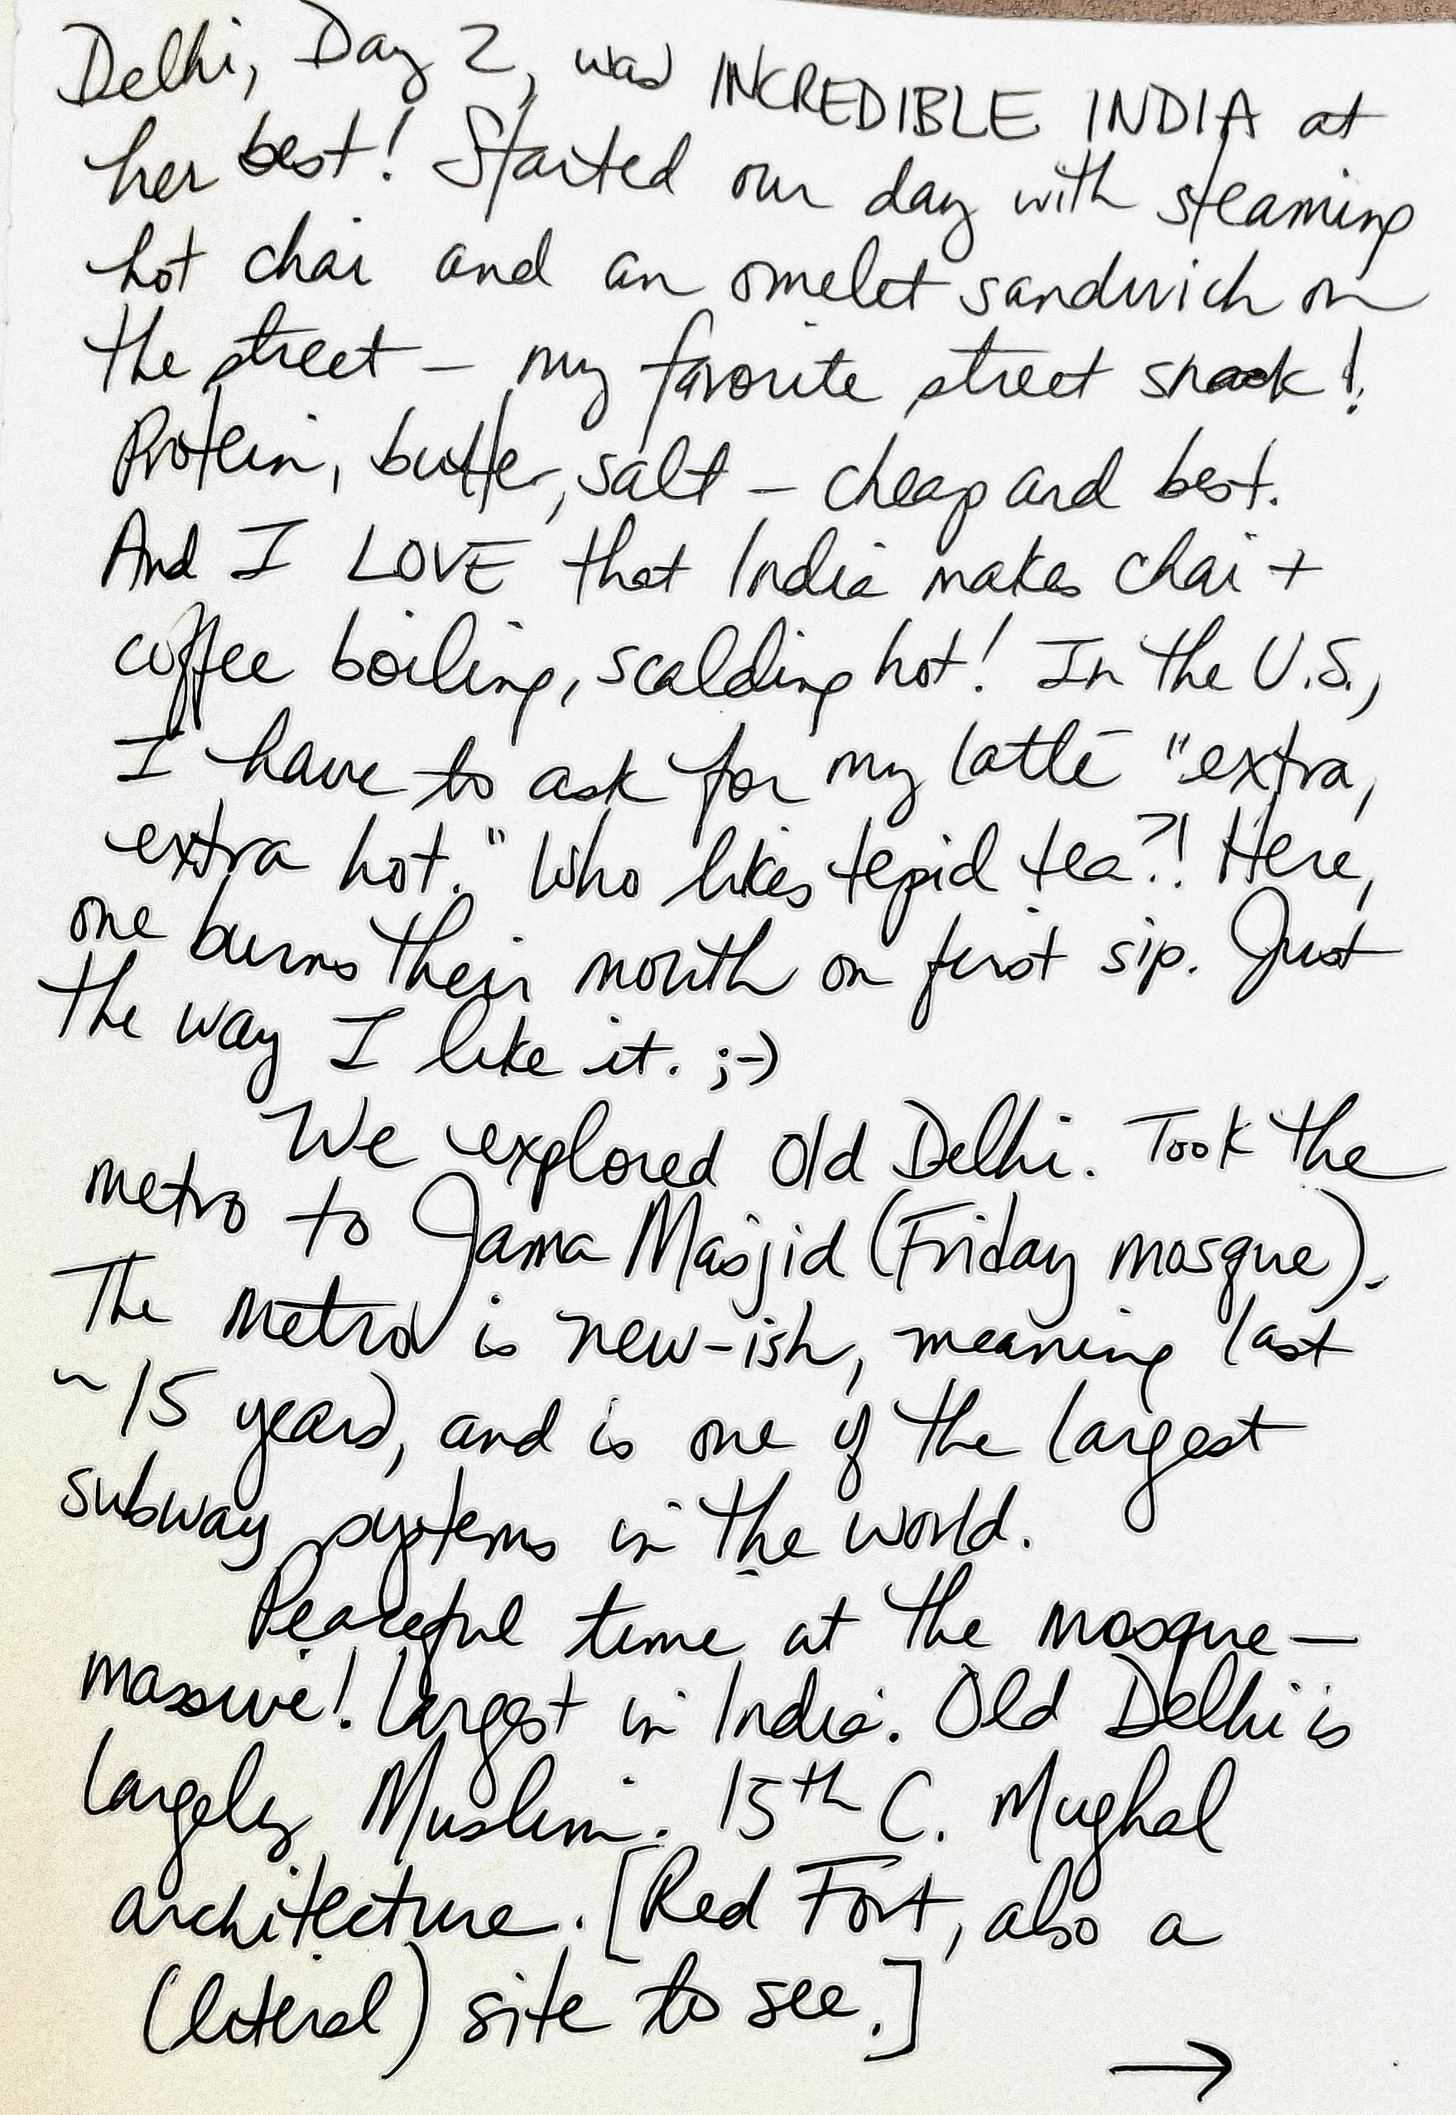 Delhi, Day 2, was INCREDIBLE INDIA at
her best! Started our day with steaming
hot chai and an omelet sandwich on
the street — my favorite street snack!
Protein, butter, salt — cheap and best.
And I LOVE that India makes chai +
coffee boiling, scalding hot! In the U.S.,
I have to ask for my latté "extra,
extra hot." Who likes tepid tea?! Here,
one burns their mouth on first sip. Just
the way I like it. ;-)
We explored Old Delhi. Took the
metro to Jama Masjid (Friday mosque).
The metro is new-ish, meaning last
~15 years, and is one of the largest
subway systems in the world.
Peaceful time at the mosque —
massive! Largest in India. Old Delhi is
largely Muslim. 15th C. Mughal
architecture. [Red Fort, also a
(literal) site to see.]
→